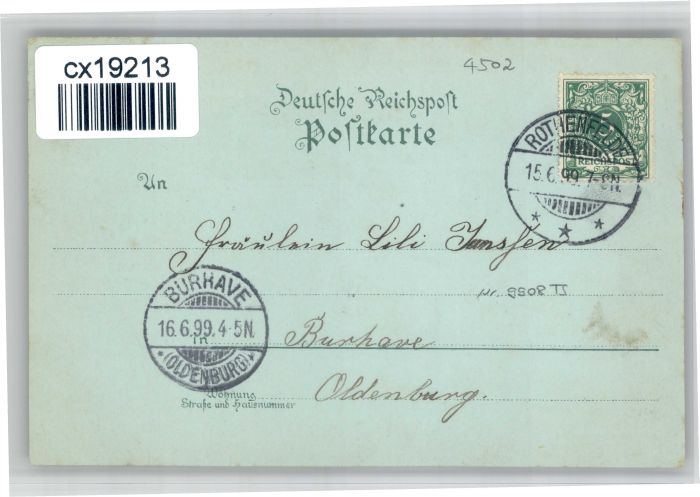 cx19213
4502
Deutsche Reichspost
Postkarte
5
REICHSPOST
ROTHENFELDE
15.6.99.7-8N.
An
Fräulein Lili Janssen
BURHAVE
16.6.99.4-5N.
(OLDENBURG)
Nr. 9908 II
in
Burhave
Wohnung
Straße und Hausnummer
Oldenburg.